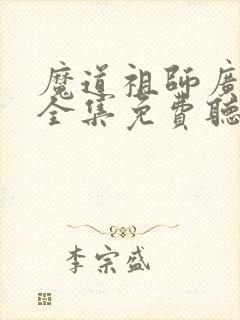 魔道祖師廣
全集免費聽
李宗盛